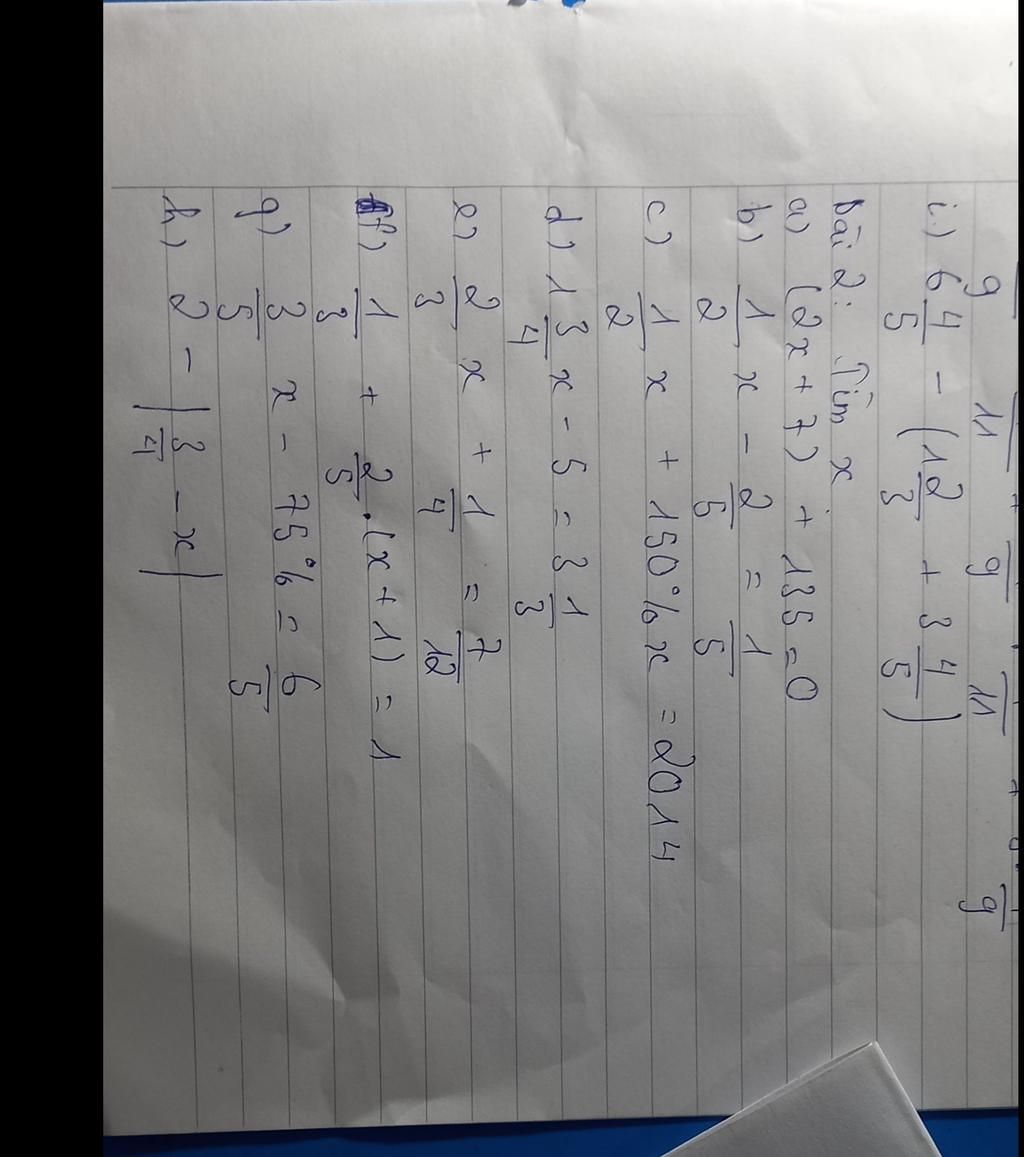 i.) 6 4/5 - (1 2/3 + 3 4/5)
bài 2: Tìm x
a) (2x + 7) + 135 = 0
b) 1/2 x - 2/5 = 1/5
c) 1/2 x + 150% x = 2014
d) 1 3/4 x - 5 = 3 1/3
e) 2/3 x + 1/4 = 7/12
f) 1/3 + 2/5 . (x + 1) = 1
g) 3/5 x - 75% = 6/5
h) 2 - | 3/4 - x |